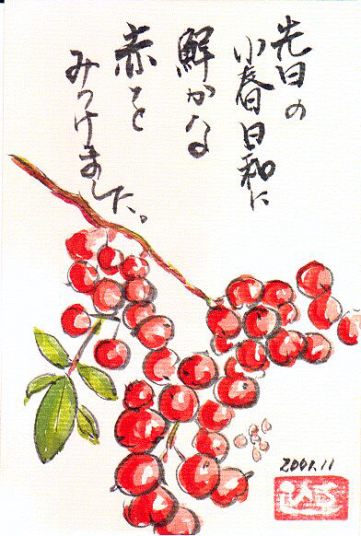 先日の
小春日和に
鮮かな
赤を
みつけました。
2001.11